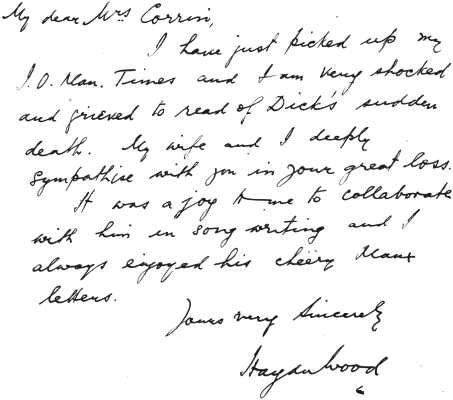 My dear Mrs Corrin,
I have just picked up my
I.O. Man. Times and I am very shocked
and grieved to read of Dick's sudden
death. My wife and I deeply
sympathise with you in your great loss.
It was a joy to me to collaborate
with him in song writing and I
always enjoyed his cheery Manx
letters.
Yours very sincerely
Haydn Wood